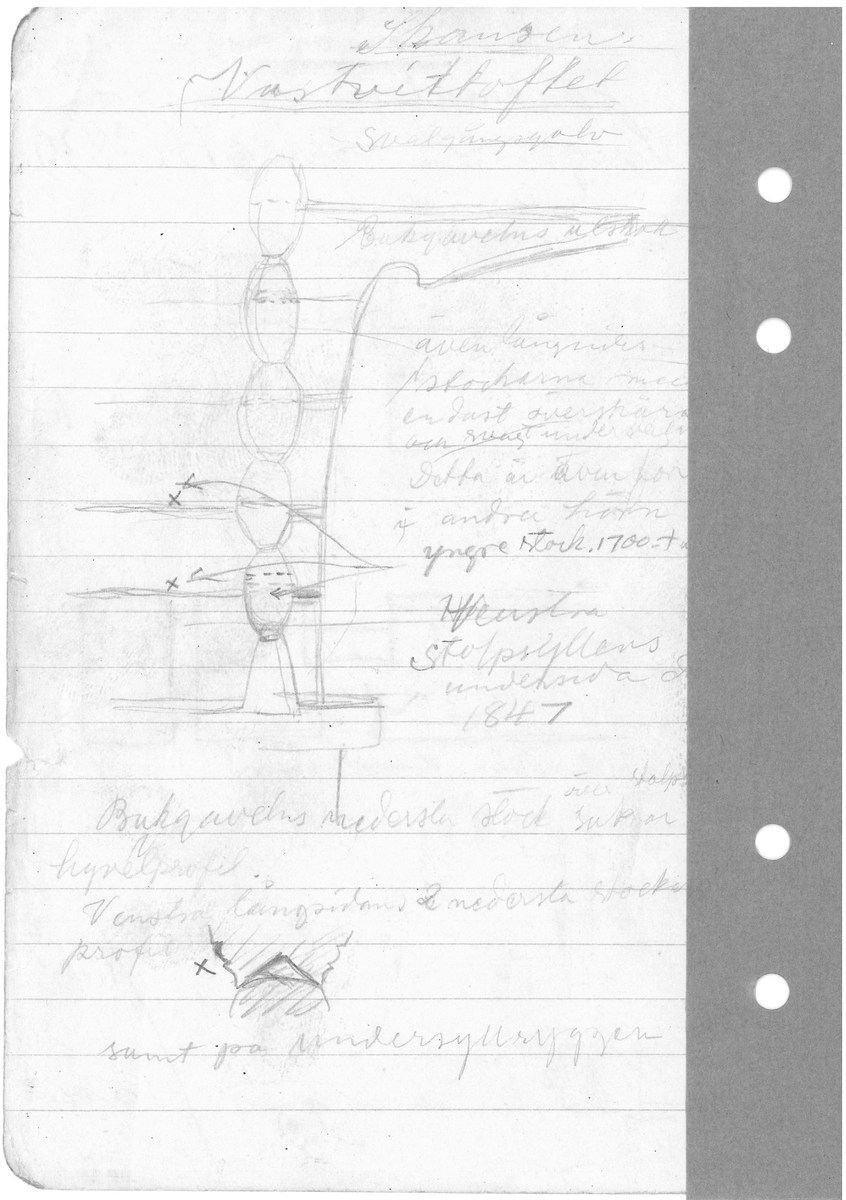 Skansen.
Vastveitloftet
Svalgångsgolv
Bakgavelns utskott
även långsides-
stockarna med
endast överskära
och svagt under
Detta är även
i andra hörn
yngre stock. 1700-t
x
x
Venstra
Stolpsyllens
undersida
1847
över stolps
Bakgavelns nedersta stock
hyvelprofil.
Venstra långsidans 2 nedersta stockar
profil
x
samt på undersyllryggen